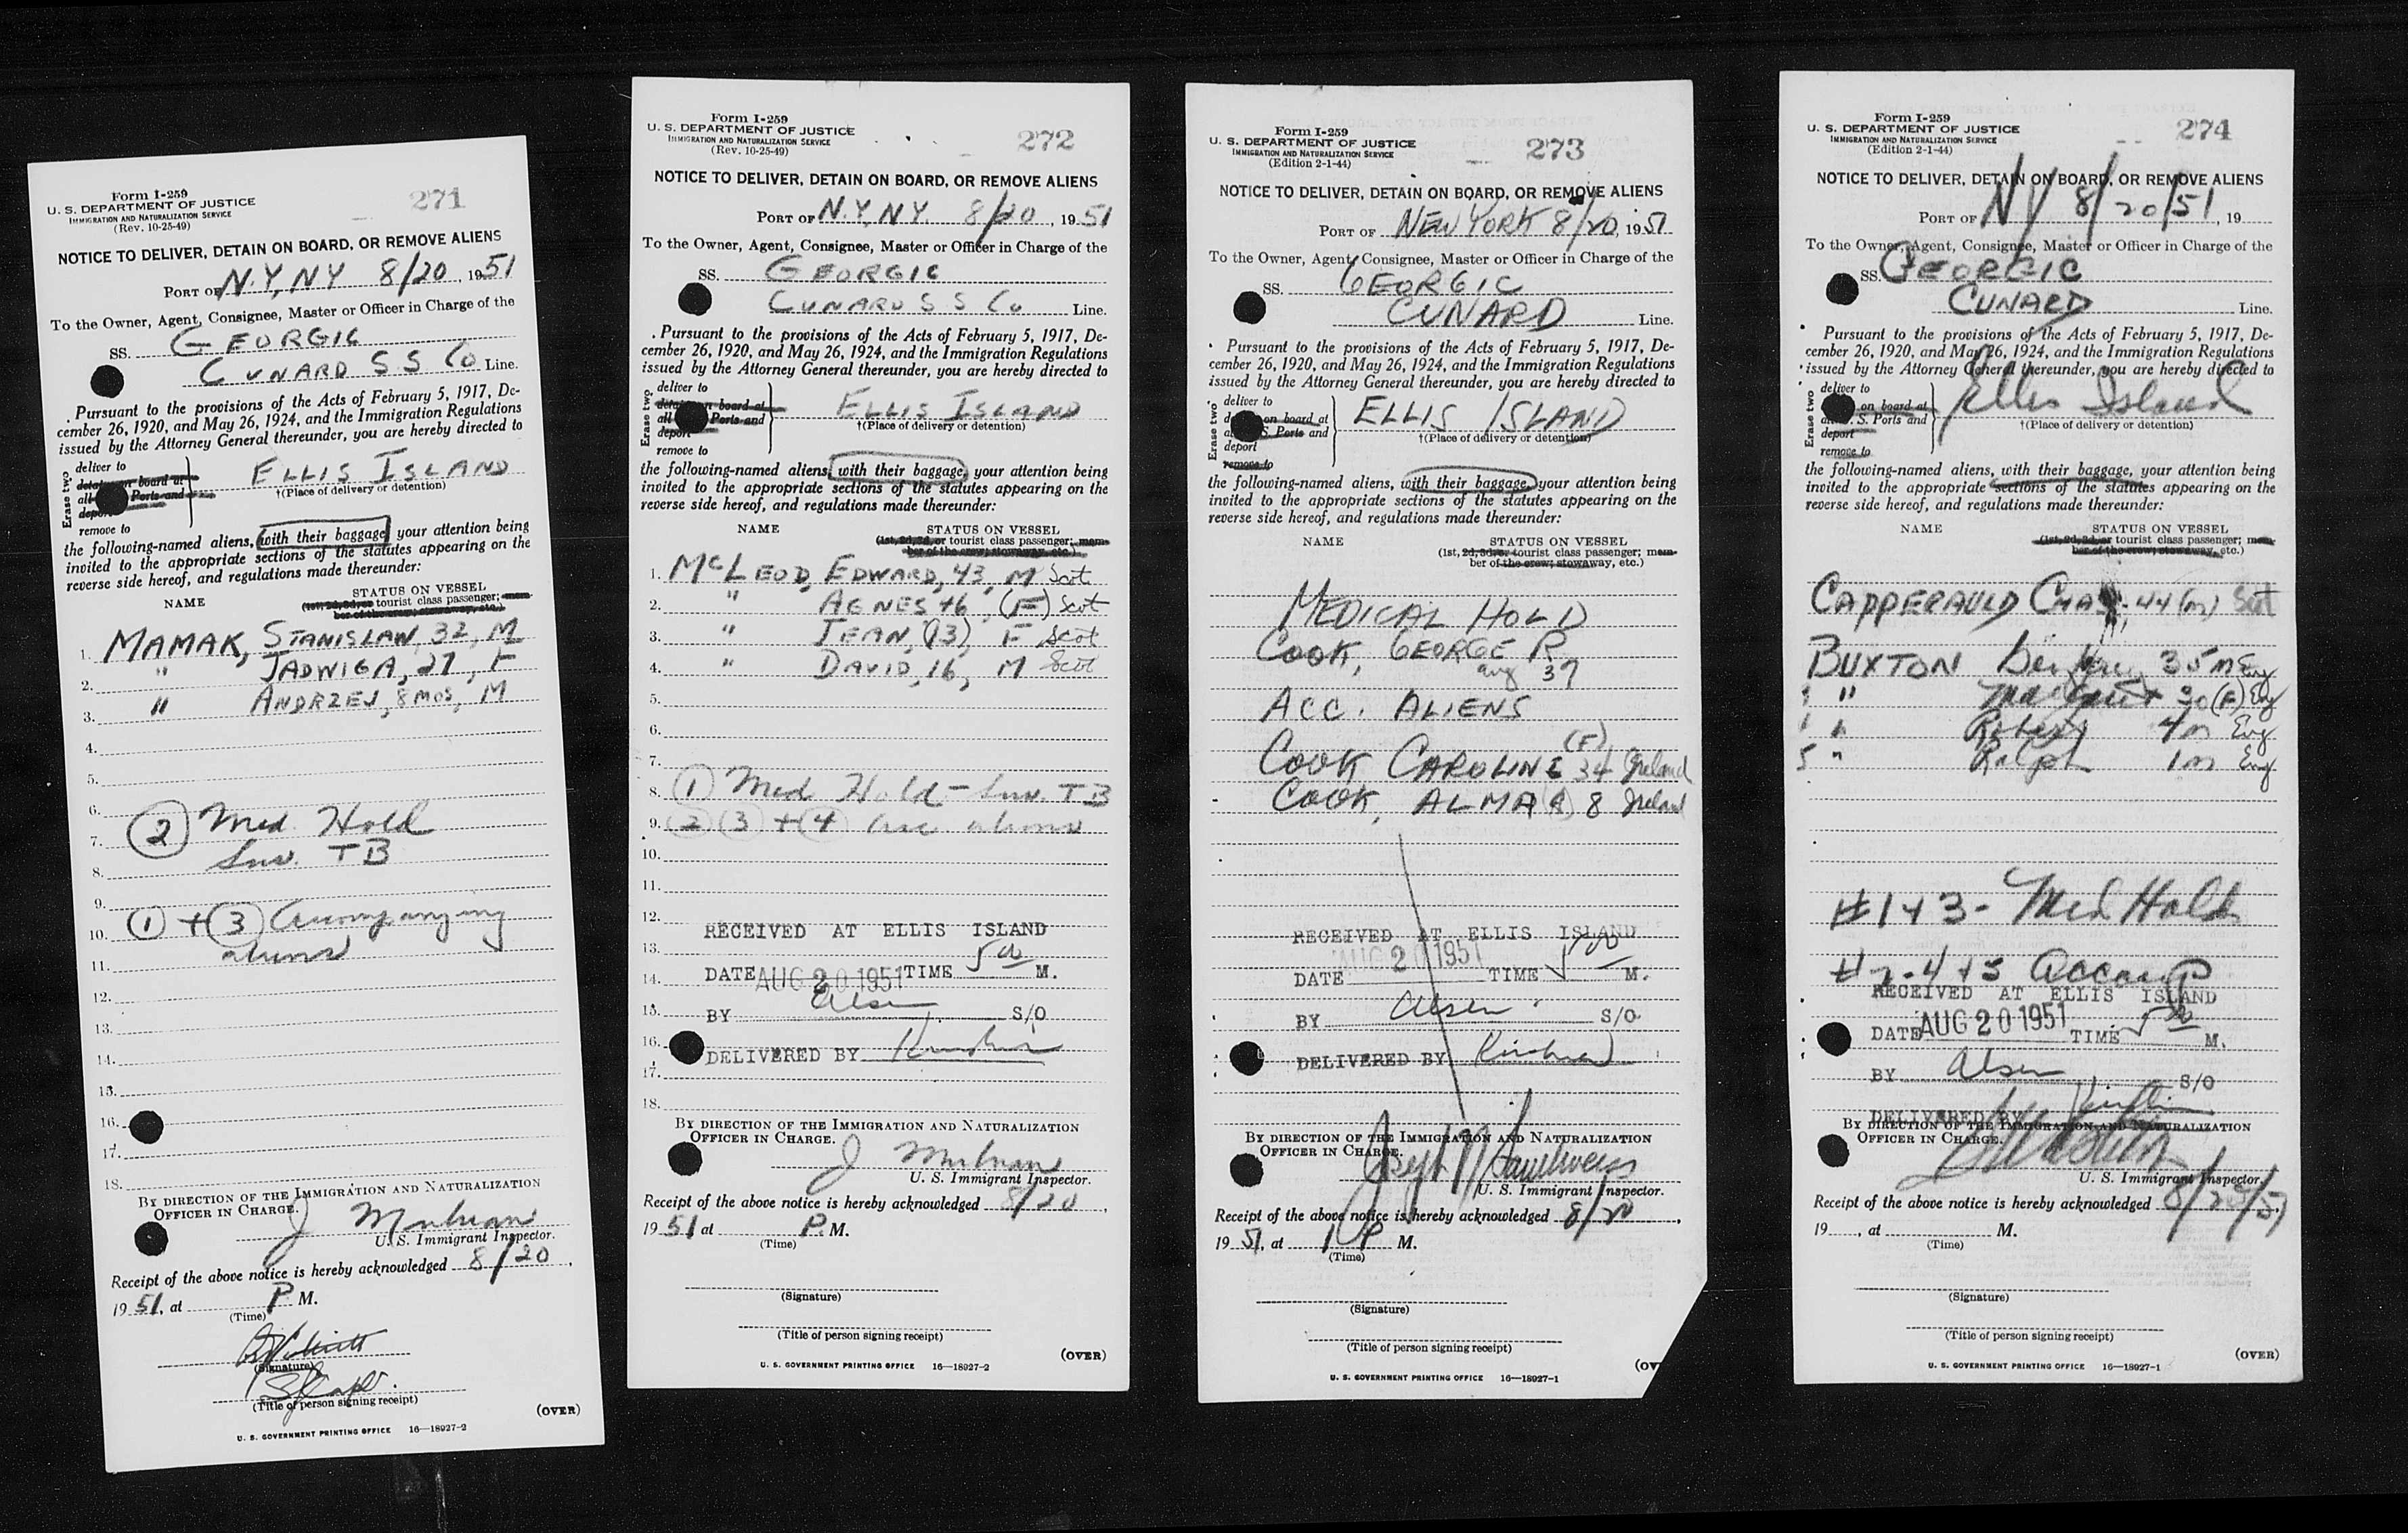 Form I-259
U. S. DEPARTMENT OF JUSTICE
IMMIGRATION AND NATURALIZATION SERVICE
(Rev. 10-25-49)
271
NOTICE TO DELIVER, DETAIN ON BOARD, OR REMOVE ALIENS
PORT OF N.Y, NY 8/20, 1951
To the Owner, Agent, Consignee, Master or Officer in Charge of the
SS. GEORGIC
CUNARD S S Co Line.
Pursuant to the provisions of the Acts of February 5, 1917, De-
cember 26, 1920, and May 26, 1924, and the Immigration Regulations
issued by the Attorney General thereunder, you are hereby directed to
Erase two
deliver to
detain on board at
all Ports and
deport
remove to
ELLIS ISLAND
†(Place of delivery or detention)
the following-named aliens, with their baggage, your attention being
invited to the appropriate sections of the statutes appearing on the
reverse side hereof, and regulations made thereunder:
NAME STATUS ON VESSEL
(1st, 2d, 3d, or tourist class passenger; mem-
ber of the crew; stowaway, etc.)
1. MAMAK, STANISLAW, 32, M
2. " JADWIGA, 27, F
3. " ANDRZEJ, 8 MOS, M
4.
5.
6.
7. (2) Med. Hold
8. Inv. TB
9.
10. (1) + (3) Accompanying
11. aliens
12.
13.
14.
15.
16.
17.
18.
BY DIRECTION OF THE IMMIGRATION AND NATURALIZATION
OFFICER IN CHARGE.
J
U. S. Immigrant Inspector.
Receipt of the above notice is hereby acknowledged 8/20,
1951, at P. M.
(Time)
(Signature)
(Title of person signing receipt)
(OVER)
U. S. GOVERNMENT PRINTING OFFICE 16—18927-2
Form I-259
U. S. DEPARTMENT OF JUSTICE
IMMIGRATION AND NATURALIZATION SERVICE
(Rev. 10-25-49)
272
NOTICE TO DELIVER, DETAIN ON BOARD, OR REMOVE ALIENS
PORT OF N.Y, NY. 8/20, 1951
To the Owner, Agent, Consignee, Master or Officer in Charge of the
SS. GEORGIC
CUNARD S S Co Line.
Pursuant to the provisions of the Acts of February 5, 1917, De-
cember 26, 1920, and May 26, 1924, and the Immigration Regulations
issued by the Attorney General thereunder, you are hereby directed to
Erase two
deliver to
detain on board at
all Ports and
deport
remove to
ELLIS ISLAND
†(Place of delivery or detention)
the following-named aliens, with their baggage, your attention being
invited to the appropriate sections of the statutes appearing on the
reverse side hereof, and regulations made thereunder:
NAME STATUS ON VESSEL
(1st, 2d, 3d, or tourist class passenger; mem-
ber of the crew; stowaway, etc.)
1. McLEOD, EDWARD, 43, M Scot
2. " AGNES 46, (F) Scot
3. " JEAN, (13), F Scot
4. " DAVID, 16, M Scot
5.
6.
7.
8. (1) Med Hold - Inv. TB
9. (2) (3) + (4) Acc aliens
10.
11.
12.
RECEIVED AT ELLIS ISLAND
13.
14. DATE AUG 20 1951 TIME 5 00 M.
15. BY Olsen S/O
16. DELIVERED BY
17.
18.
BY DIRECTION OF THE IMMIGRATION AND NATURALIZATION
OFFICER IN CHARGE.
J
U. S. Immigrant Inspector.
Receipt of the above notice is hereby acknowledged 8/20,
1951 at P. M.
(Time)
(Signature)
(Title of person signing receipt)
(OVER)
U. S. GOVERNMENT PRINTING OFFICE 16—18927-2
Form I-259
U. S. DEPARTMENT OF JUSTICE
IMMIGRATION AND NATURALIZATION SERVICE
(Edition 2-1-44)
273
NOTICE TO DELIVER, DETAIN ON BOARD, OR REMOVE ALIENS
PORT OF NEW YORK 8/20, 1951
To the Owner, Agent, Consignee, Master or Officer in Charge of the
SS. GEORGIC
CUNARD Line.
Pursuant to the provisions of the Acts of February 5, 1917, De-
cember 26, 1920, and May 26, 1924, and the Immigration Regulations
issued by the Attorney General thereunder, you are hereby directed to
Erase two
deliver to
on board at
S. Ports and
deport
remove to
ELLIS ISLAND
†(Place of delivery or detention)
the following-named aliens, with their baggage, your attention being
invited to the appropriate sections of the statutes appearing on the
reverse side hereof, and regulations made thereunder:
NAME STATUS ON VESSEL
(1st, 2d, 3d, or tourist class passenger; mem-
ber of the crew; stowaway, etc.)
MEDICAL HOLD
COOK, GEORGE R
37
ACC. ALIENS
(F)
COOK CAROLINE 34 Ireland
COOK, ALMA 8 Ireland
RECEIVED AT ELLIS ISLAND
DATE AUG 20 1951 TIME 5 00 M.
BY Olsen S/O
DELIVERED BY
BY DIRECTION OF THE IMMIGRATION AND NATURALIZATION
OFFICER IN CHARGE.
Joseph M
U. S. Immigrant Inspector.
Receipt of the above notice is hereby acknowledged 8/20,
1951, at 1 P M.
(Time)
(Signature)
(Title of person signing receipt)
(OV
U. S. GOVERNMENT PRINTING OFFICE 16—18927-1
Form I-259
U. S. DEPARTMENT OF JUSTICE
IMMIGRATION AND NATURALIZATION SERVICE
(Edition 2-1-44)
274
NOTICE TO DELIVER, DETAIN ON BOARD, OR REMOVE ALIENS
PORT OF NY 8/20/51, 19
To the Owner, Agent, Consignee, Master or Officer in Charge of the
SS. GEORGIC
CUNARD Line.
Pursuant to the provisions of the Acts of February 5, 1917, De-
cember 26, 1920, and May 26, 1924, and the Immigration Regulations
issued by the Attorney General thereunder, you are hereby directed to
Erase two
deliver to
on board at
S. Ports and
deport
remove to
Ellis Island
†(Place of delivery or detention)
the following-named aliens, with their baggage, your attention being
invited to the appropriate sections of the statutes appearing on the
reverse side hereof, and regulations made thereunder:
NAME STATUS ON VESSEL
(1st, 2d, 3d, or tourist class passenger; mem-
ber of the crew; stowaway, etc.)
CAPPERAULD CHAS. 44 (M) Scot
BUXTON 35 M Eng
" Margaret 30 (F) Eng
" Robert 4 m Eng
5 " Ralph 1 m Eng
#1 + 3 - Med Hold
#2-4 + 5 Accomp
RECEIVED AT ELLIS ISLAND
DATE AUG 20 1951 TIME 5 00 M.
BY Olsen S/O
DELIVERED BY
BY DIRECTION OF THE IMMIGRATION AND NATURALIZATION
OFFICER IN CHARGE.
U. S. Immigrant Inspector.
Receipt of the above notice is hereby acknowledged 8/20/51,
19, at M.
(Time)
(Signature)
(Title of person signing receipt)
(OVER)
U. S. GOVERNMENT PRINTING OFFICE 16—18927-1